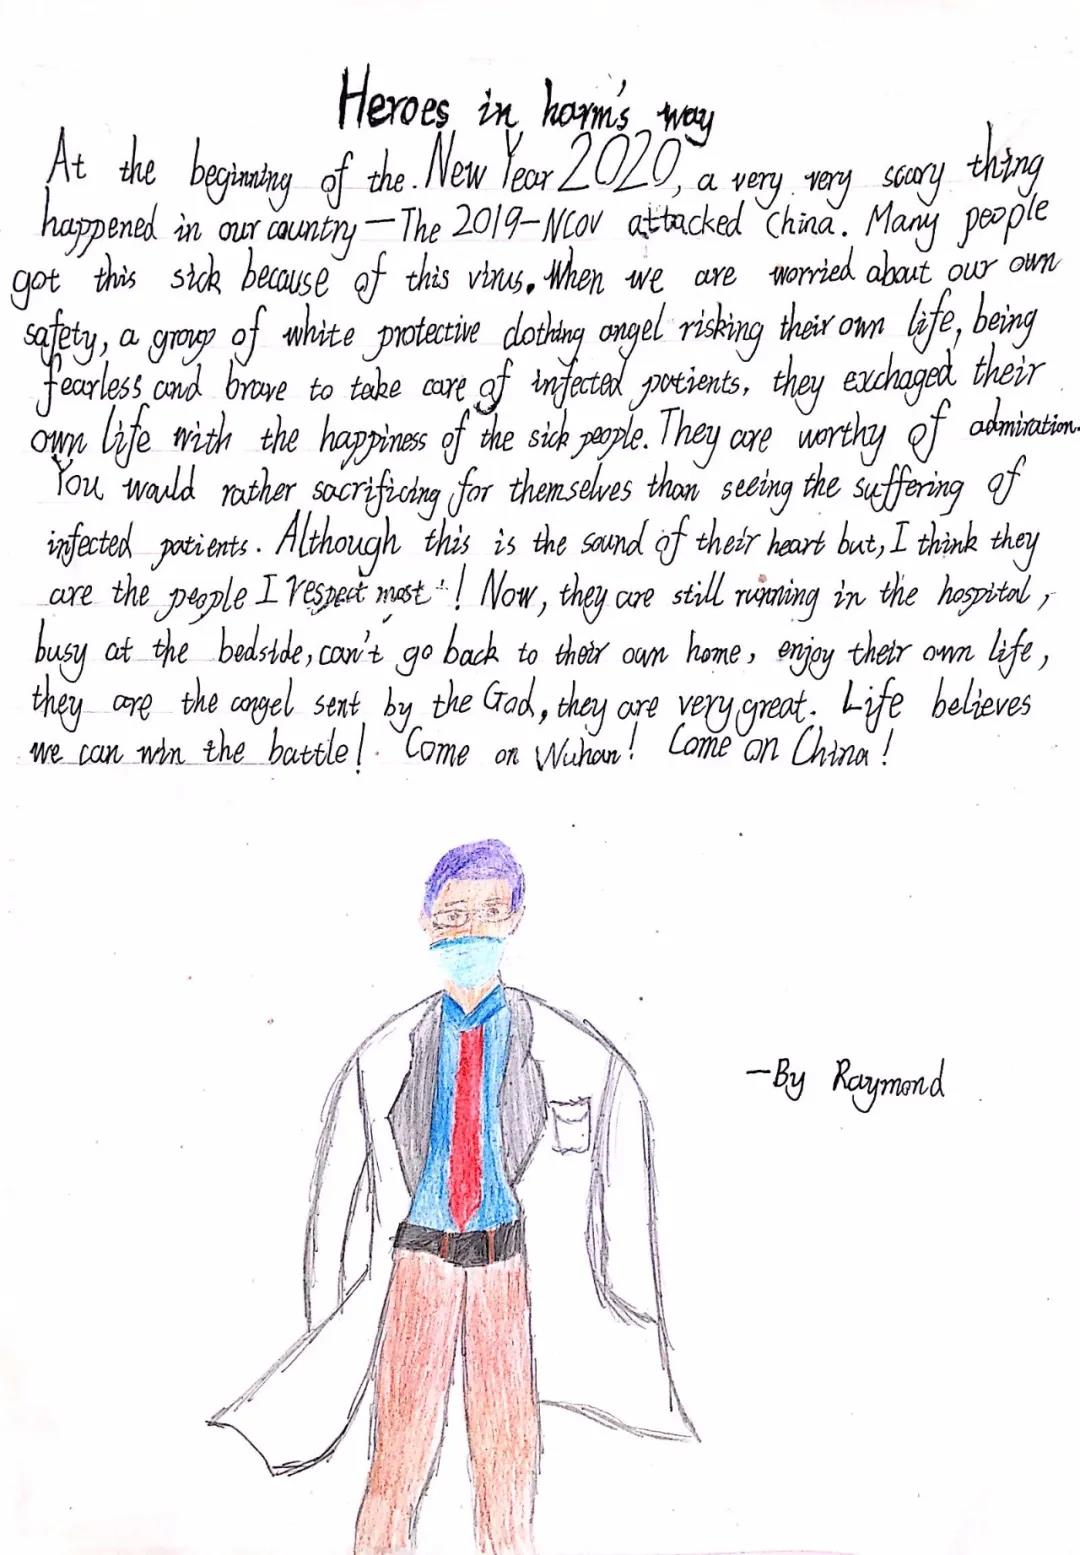 Heroes in harm's way
At the beginning of the. New Year 2020, a very very scary thing
happened in our country—The 2019-NCOV attacked China. Many people
got this sick because of this virus. When we are worried about our own
safety, a group of white protective clothing angel risking their own life, being
fearless and brave to take care of infected patients, they exchaged their
own life with the happiness of the sick people. They are worthy of admiration.
You would rather sacrificing for themselves than seeing the suffering of
infected patients. Although this is the sound of their heart but, I think they
are the people I respect most! Now, they are still running in the hospital,
busy at the bedside, can't go back to their own home, enjoy their own life,
they are the angel sent by the God, they are very great. Life believes
we can win the battle! Come on Wuhan! Come on China!
—By Raymond